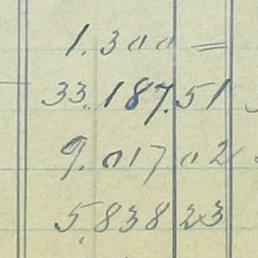 1.300 =
33.187.51
9.017 02
5.838 23